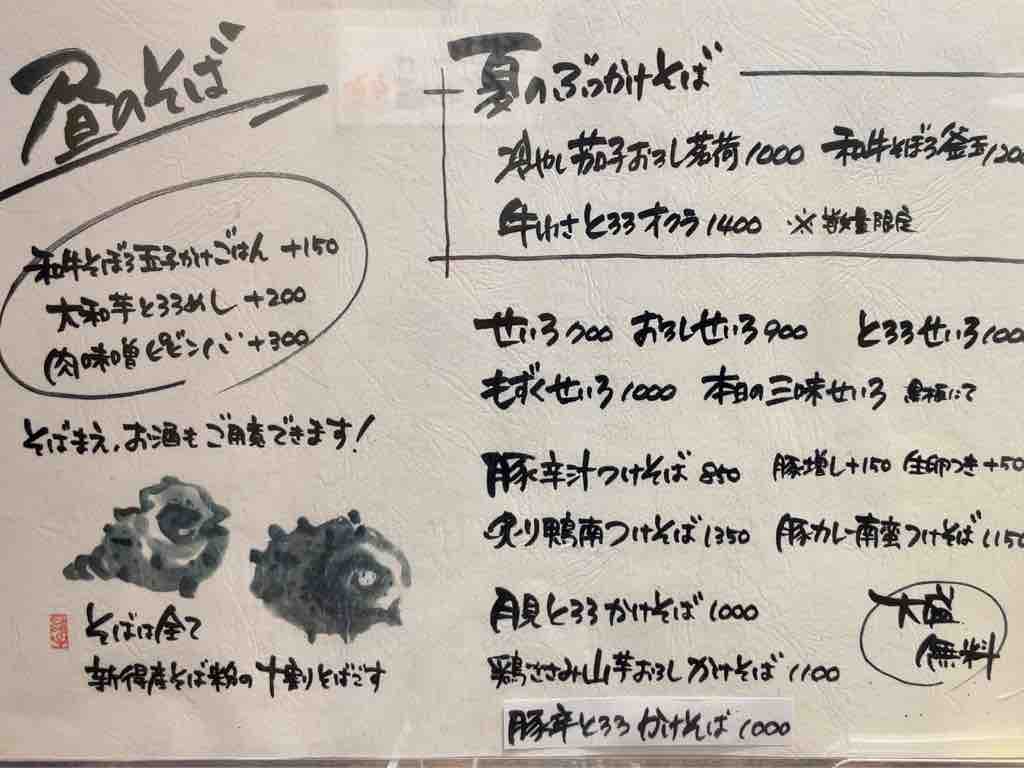 昼のそば
和牛そぼろ玉子かけごはん +150
大和芋とろろめし +200
肉味噌ビビンバ +300
そばまえ、お酒もご用意できます!
そばは全て
新得産そば粉の十割りそばです
夏のぶっかけそば
冷やし茄子おろし茗荷 1000 和牛そぼろ釜玉 120
牛しぐれとろろオクラ 1400 ※数量限定
せいろ 700 おろしせいろ 900 とろろせいろ 100
もずくせいろ 1000 本日の三味せいろ 黒板にて
豚辛汁つけそば 850 豚増し+150 生卵つき+50
炙り鴨南つけそば 1350 豚カレー南蛮つけそば 1150
月見とろろかけそば 1000
鶏ささみ山芋おろしかけそば 1100
豚辛とろろかけそば 1000
大盛
無料